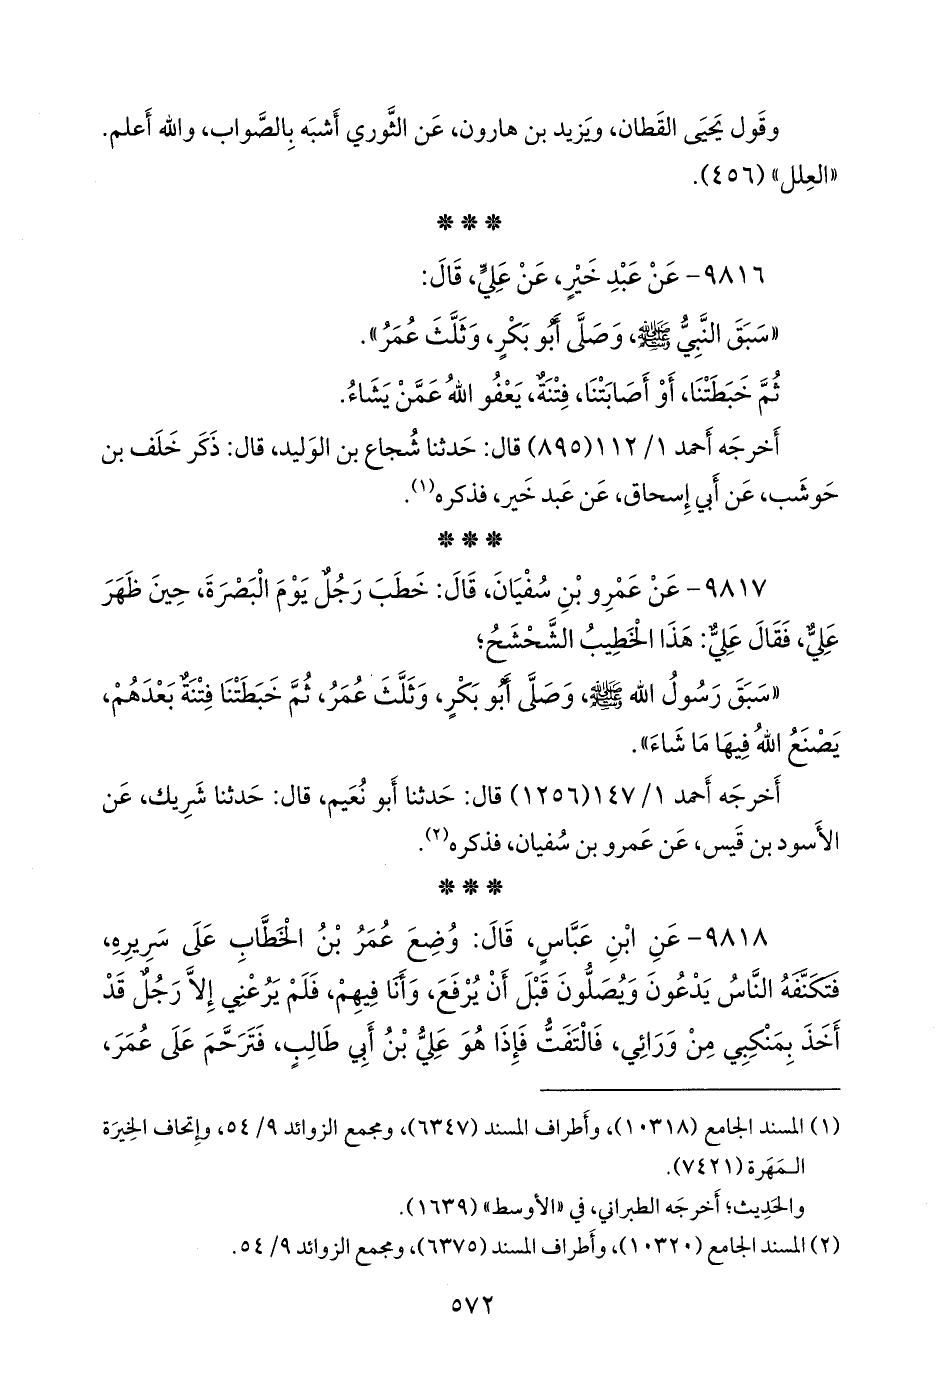 وقَول يَحيَى القَطان، ويَزيد بن هارون، عَن الثَّوري أَشبَه بِالصَّواب، والله أَعلم.
«العِلل» (٤٥٦).
* * *
٩٨١٦- عَنْ عَبْدِ خَيْرٍ، عَنْ عَلِيٍّ، قَالَ:
«سَبَقَ النَّبِيُّ ﷺ، وَصَلَّى أَبُو بَكْرٍ، وَثَلَّثَ عُمَرُ».
ثُمَّ خَبَطَتْنَا، أَوْ أَصَابَتْنَا، فِتْنَةٌ، يَعْفُو اللهُ عَمَّنْ يَشَاءُ.
أَخرجَه أَحمد ١/ ١١٢(٨٩٥) قال: حَدثنا شُجاع بن الوَليد، قال: ذَكَر خَلَف بن
حَوشَب، عَن أَبي إِسحاق، عَن عَبد خَير، فذكره(١).
* * *
٩٨١٧- عَنْ عَمْرِو بْنِ سُفْيَانَ، قَالَ: خَطَبَ رَجُلٌ يَوْمَ الْبَصْرَةَ، حِينَ ظَهَرَ
عَلِيٌّ، فَقَالَ عَلِيٌّ: هَذَا الْخَطِيبُ الشَّحْشَحُ؛
«سَبَقَ رَسُولُ الله ﷺ، وَصَلَّى أَبُو بَكْرٍ، وَثَلَّثَ عُمَرُ، ثُمَّ خَبَطَتْنَا فِتْنَةٌ بَعْدَهُمْ،
يَصْنَعُ اللهُ فِيهَا مَا شَاءَ».
أَخرجَه أَحمد ١/ ١٤٧(١٢٥٦) قال: حَدثنا أَبو نُعَيم، قال: حَدثنا شَرِيك، عَن
الأَسود بن قَيس، عَن عَمرو بن سُفيان، فذكره(٢).
* * *
٩٨١٨- عَنِ ابْنِ عَبَّاسٍ، قَالَ: وُضِعَ عُمَرُ بْنُ الْخَطَّابِ عَلَى سَرِيرِهِ،
فَتَكَنَّفَهُ النَّاسُ يَدْعُونَ وَيُصَلُّونَ قَبْلَ أَنْ يُرْفَعَ، وَأَنَا فِيهِمْ، فَلَمْ يَرُعْنِي إِلاَّ رَجُلٌ قَدْ
أَخَذَ بِمَنْكِبِي مِنْ وَرَائِي، فَالْتَفَتُّ فَإِذَا هُوَ عَلِيُّ بْنُ أَبِي طَالِبٍ، فَتَرَحَّمَ عَلَى عُمَرَ،
(١) المسند الجامع (١٠٣١٨)، وأَطراف المسند (٦٣٤٧)، ومجمع الزوائد ٩/ ٥٤، وإِتحاف الخِيرَة
المَهَرة (٧٤٢١).
والحَدِيث؛ أَخرجَه الطبراني، في «الأَوسط» (١٦٣٩).
(٢) المسند الجامع (١٠٣٢٠)، وأَطراف المسند (٦٣٧٥)، ومجمع الزوائد ٩/ ٥٤.
٥٧٢